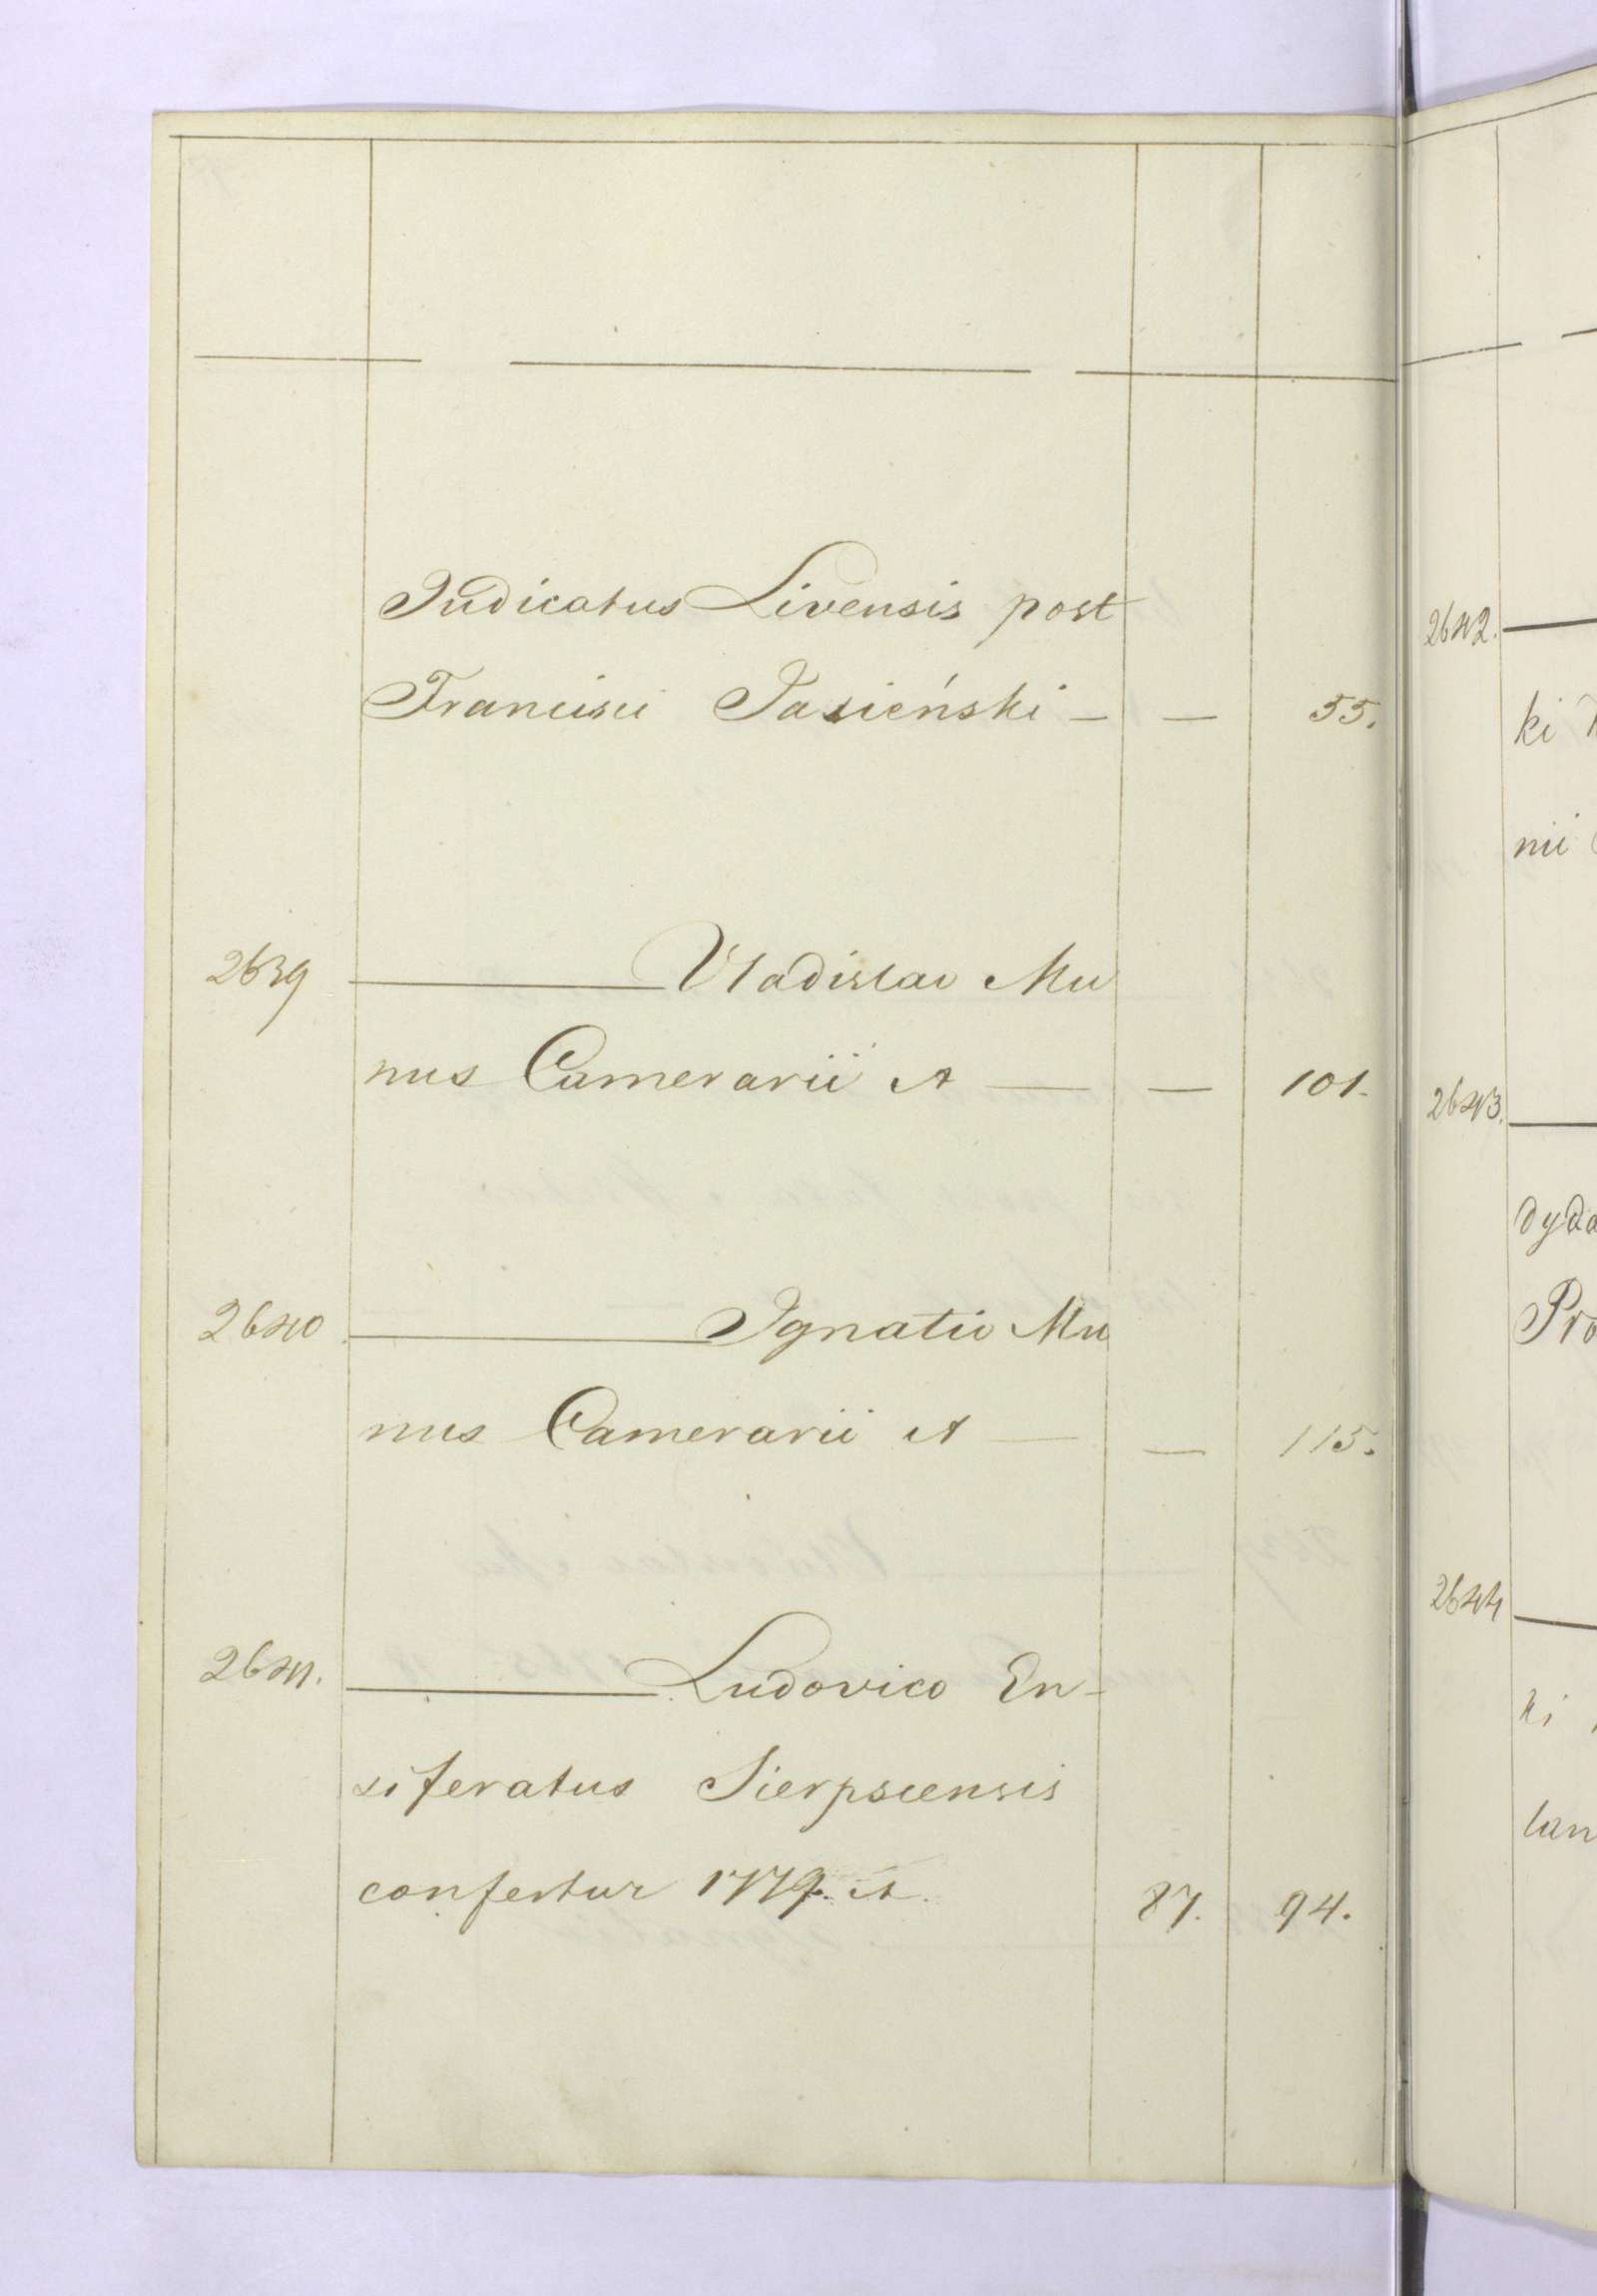 Judicatus Livensis post
Francisci Jasieński — — 55.
2639 — Vladislao Mu
nus Camerarii A — — 101.
2640 — Ignatio Mu
nus Camerarii A — — 115.
2641. — Ludovico En-
siferatus Sierpscensis
confertur 1779. A. 87. 94.
2642. —
ki
nii
2643. —
dyda
Pro
2644 —
ki
lan